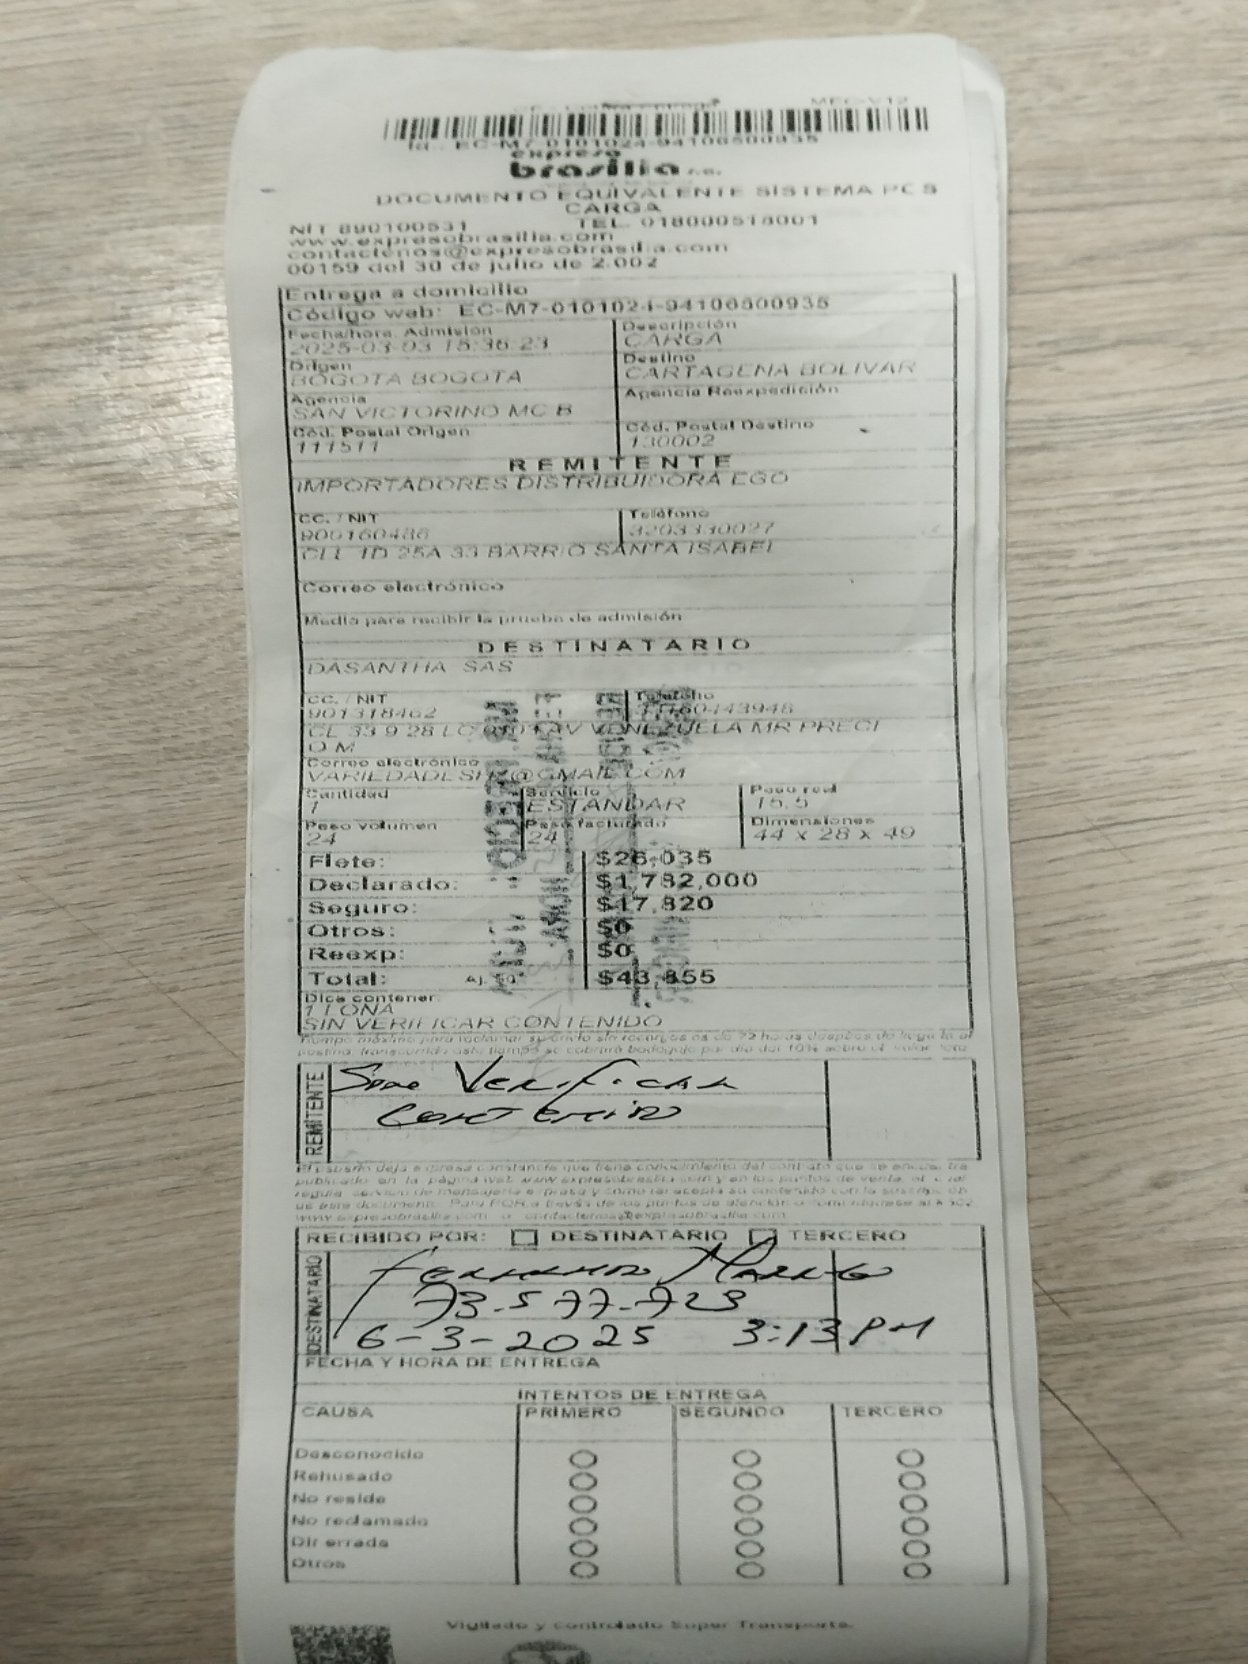 MFC-V12
Id.: EC-M7-0101024-94106500935
expreso
brasilia s.a.
DOCUMENTO EQUIVALENTE SISTEMA PCS
CARGA
NIT 890100531 TEL. 018000518001
www.expresobrasilia.com
contactenos@expresobrasilia.com
00159 del 30 de julio de 2.002
Entrega a domicilio
Código web: EC-M7-0101024-94106500935
Fecha/hora. Admisión Descripción
2025-03-03 15:36:23 CARGA
Origen Destino
BOGOTA BOGOTA CARTAGENA BOLIVAR
Agencia Agencia Reexpedición
SAN VICTORINO MC B
Cód. Postal Origen Cód. Postal Destino
111511 130002
REMITENTE
IMPORTADORES DISTRIBUIDORA EGO
CC. / NIT Teléfono
900160486 3203330027
CLL 1D 25A 33 BARRIO SANTA ISABEL
Correo electrónico
Medio para recibir la prueba de admisión
DESTINATARIO
DASANTHA SAS
CC. / NIT Teléfono
901318462
CL 33 9 28 AV VENEZUELA MR PRECI
O M
Correo electrónico
@GMAIL.COM
Cantidad Servicio Peso real
1 ESTANDAR 15.5
Peso volumen Peso facturado Dimensiones
24 24 44 x 28 x 49
Flete: $26,035
Declarado: $1,782,000
Seguro: $17,820
Otros: $0
Reexp: $0
Total: $43,855
Dice contener
1 LONA
SIN VERIFICAR CONTENIDO
Tiempo máximo para reclamar su envío sin recargos es de 72 horas después de llegada al
destino, transcurrido este tiempo se cobrará bodegaje por día del 10% sobre el valor
REMITENTE
Sin Verificar
Contenido
El usuario deja expresa constancia que tiene conocimiento del contrato que se encuentra
publicado en la página web www.expresobrasilia.com y en los puntos de venta, el cual
regula servicio de mensajería expresa y como tal acepta su contenido con la suscripción
de este documento. Para PQR a través de los puntos de atención o
www.expresobrasilia.com o contactenos@expresobrasilia.com
RECIBIDO POR: DESTINATARIO TERCERO
DESTINATARIO
Fernando
73.577-723
6-3-2025 3:13 PM
FECHA Y HORA DE ENTREGA
INTENTOS DE ENTREGA
CAUSA PRIMERO SEGUNDO TERCERO
Desconocido
Rehusado
No reside
No reclamado
Dir errada
Otros
Vigilado y controlado Super Transporte.